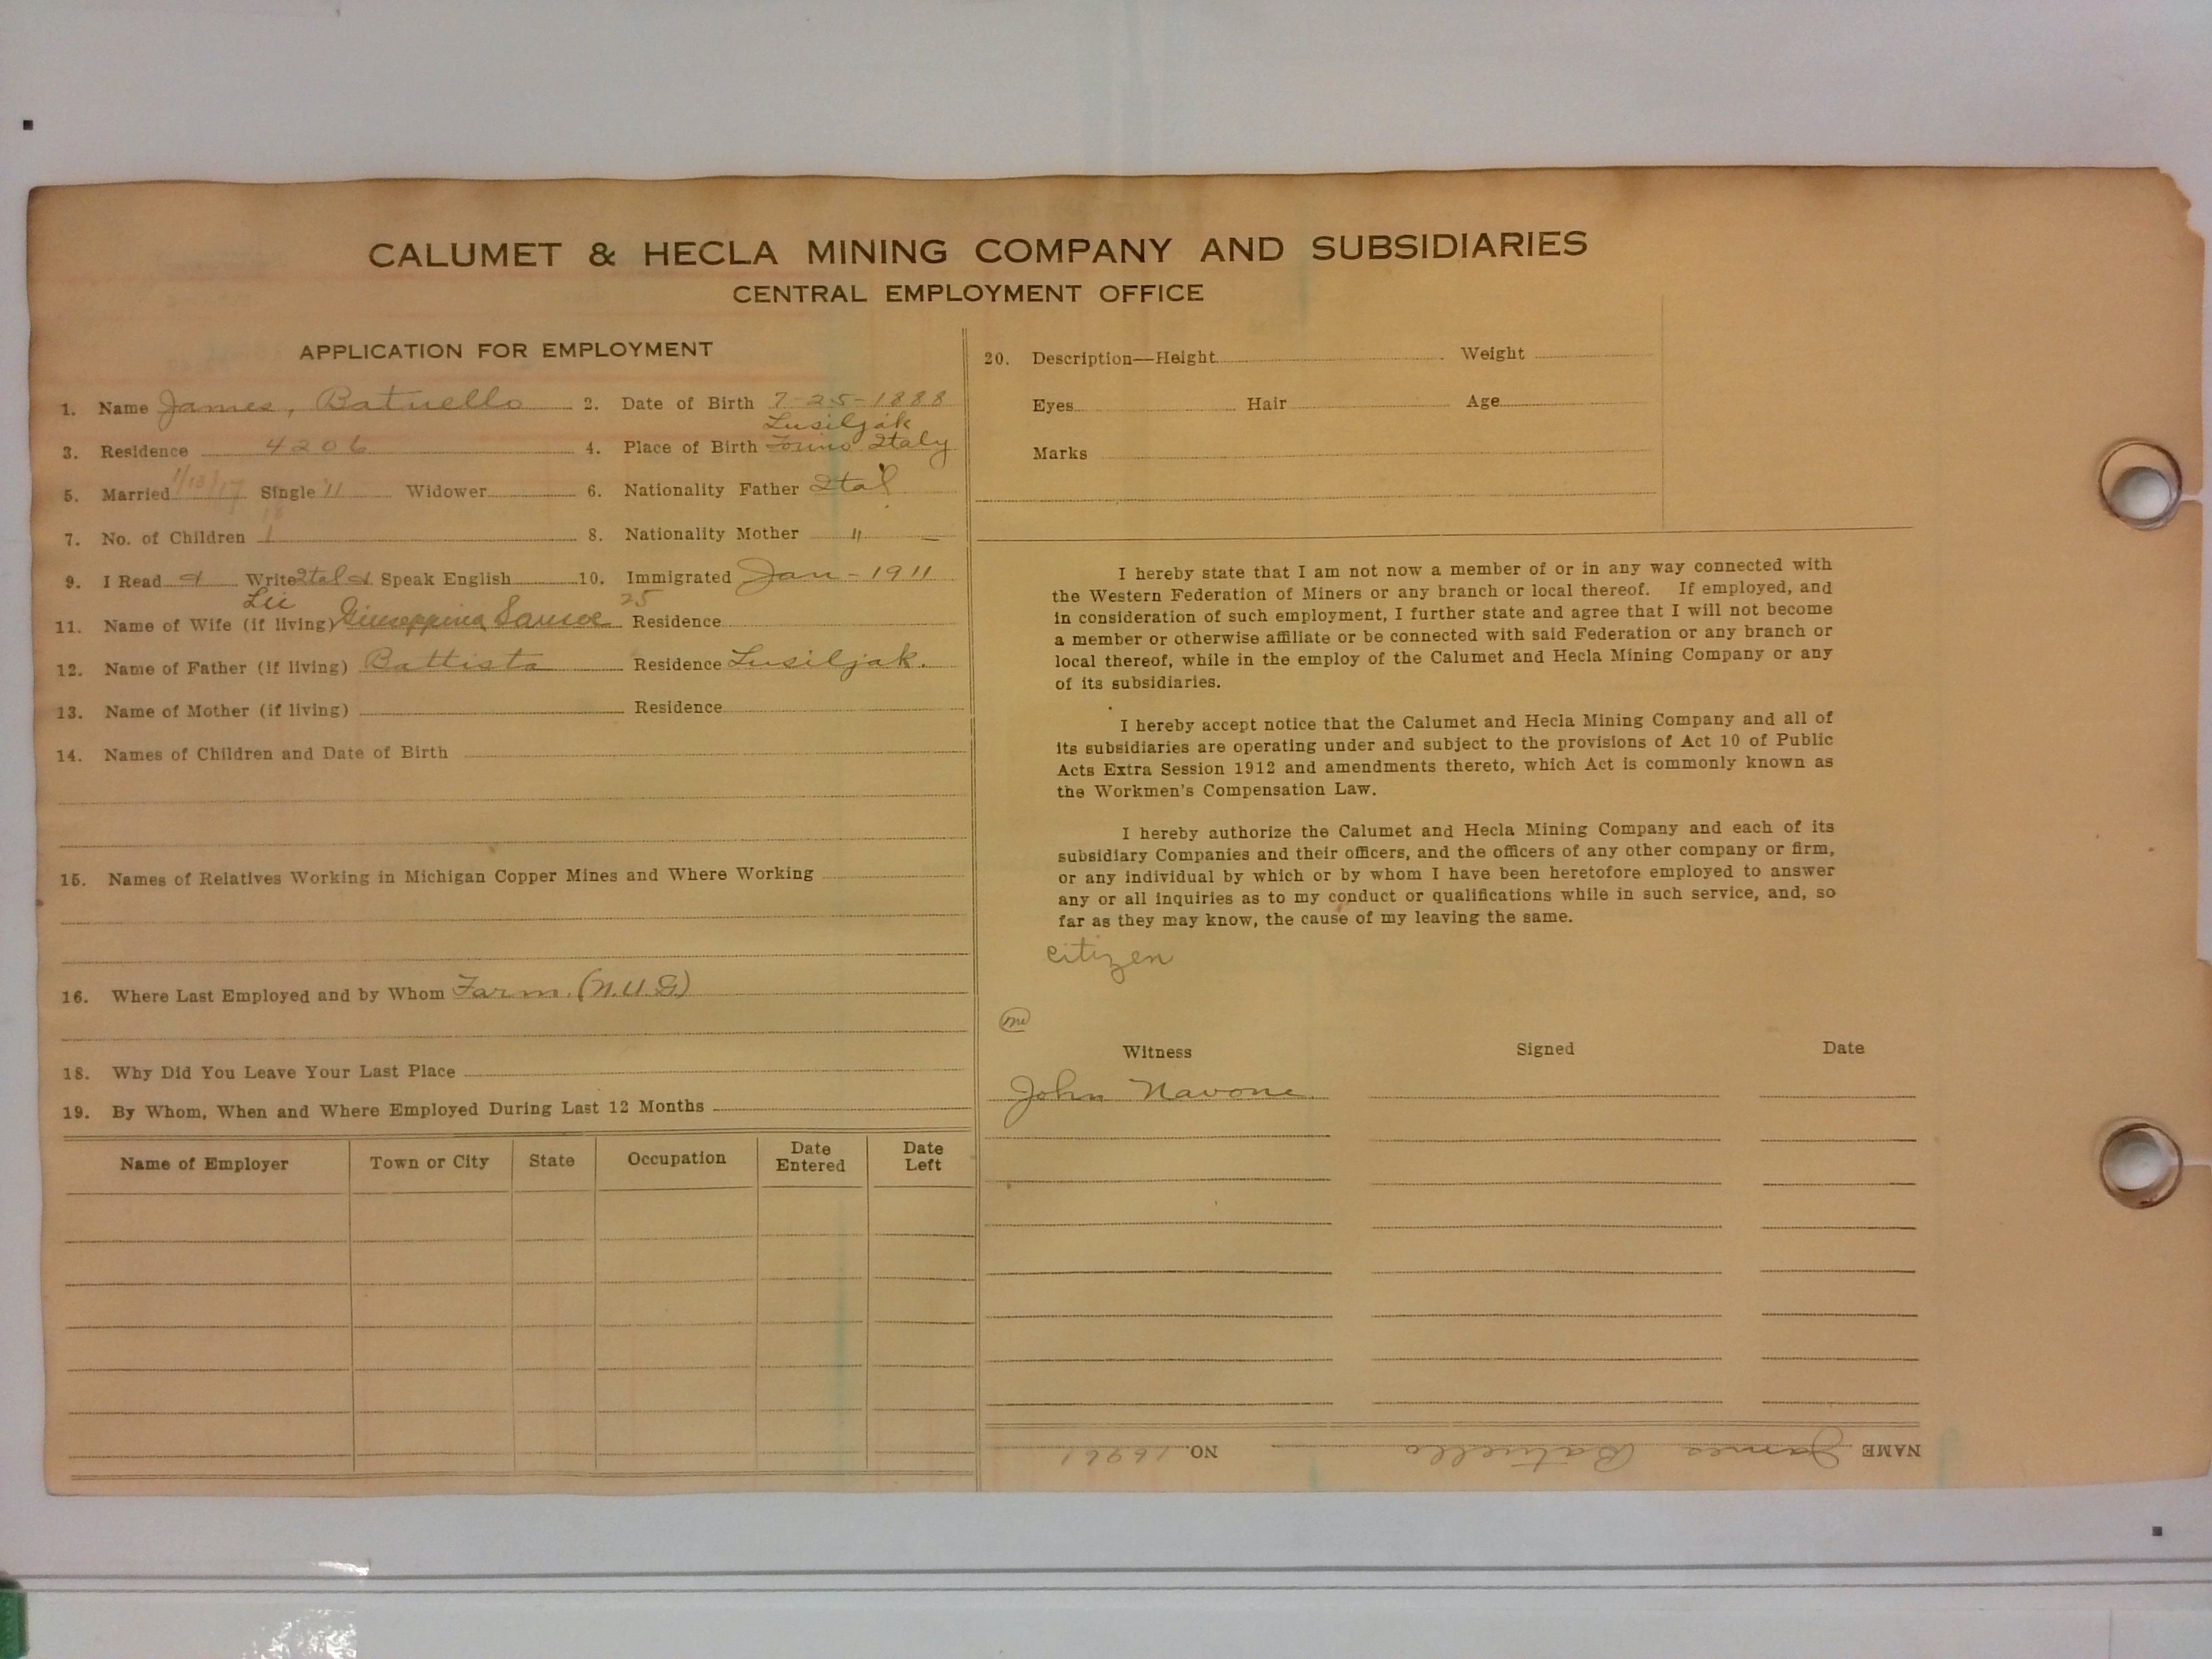 CALUMET & HECLA MINING COMPANY AND SUBSIDIARIES
CENTRAL EMPLOYMENT OFFICE
APPLICATION FOR EMPLOYMENT
1. Name James, Batuello 2. Date of Birth 7-25-1888
Lusiljak
3. Residence 4206 4. Place of Birth Torino Italy
5. Married 1/13/17 Single "11 Widower 6. Nationality Father Ital
7. No. of Children 1 8. Nationality Mother "
9. I Read & Write Ital & Speak English 10. Immigrated Jan - 1911
25
11. Name of Wife (if living) Giuseppina Residence
12. Name of Father (if living) Battista Residence Lusiljak.
13. Name of Mother (if living) Residence
14. Names of Children and Date of Birth
15. Names of Relatives Working in Michigan Copper Mines and Where Working
16. Where Last Employed and by Whom Farm. (N.U.G)
18. Why Did You Leave Your Last Place
19. By Whom, When and Where Employed During Last 12 Months
Name of Employer Town or City State Occupation Date Entered Date Left
20. Description—Height Weight
Eyes Hair Age
Marks
I hereby state that I am not now a member of or in any way connected with
the Western Federation of Miners or any branch or local thereof. If employed, and
in consideration of such employment, I further state and agree that I will not become
a member or otherwise affiliate or be connected with said Federation or any branch or
local thereof, while in the employ of the Calumet and Hecla Mining Company or any
of its subsidiaries.
I hereby accept notice that the Calumet and Hecla Mining Company and all of
its subsidiaries are operating under and subject to the provisions of Act 10 of Public
Acts Extra Session 1912 and amendments thereto, which Act is commonly known as
the Workmen's Compensation Law.
I hereby authorize the Calumet and Hecla Mining Company and each of its
subsidiary Companies and their officers, and the officers of any other company or firm,
or any individual by which or by whom I have been heretofore employed to answer
any or all inquiries as to my conduct or qualifications while in such service, and, so
far as they may know, the cause of my leaving the same.
citizen
Witness Signed Date
John Navone.
NAME James Batuello NO. 16961